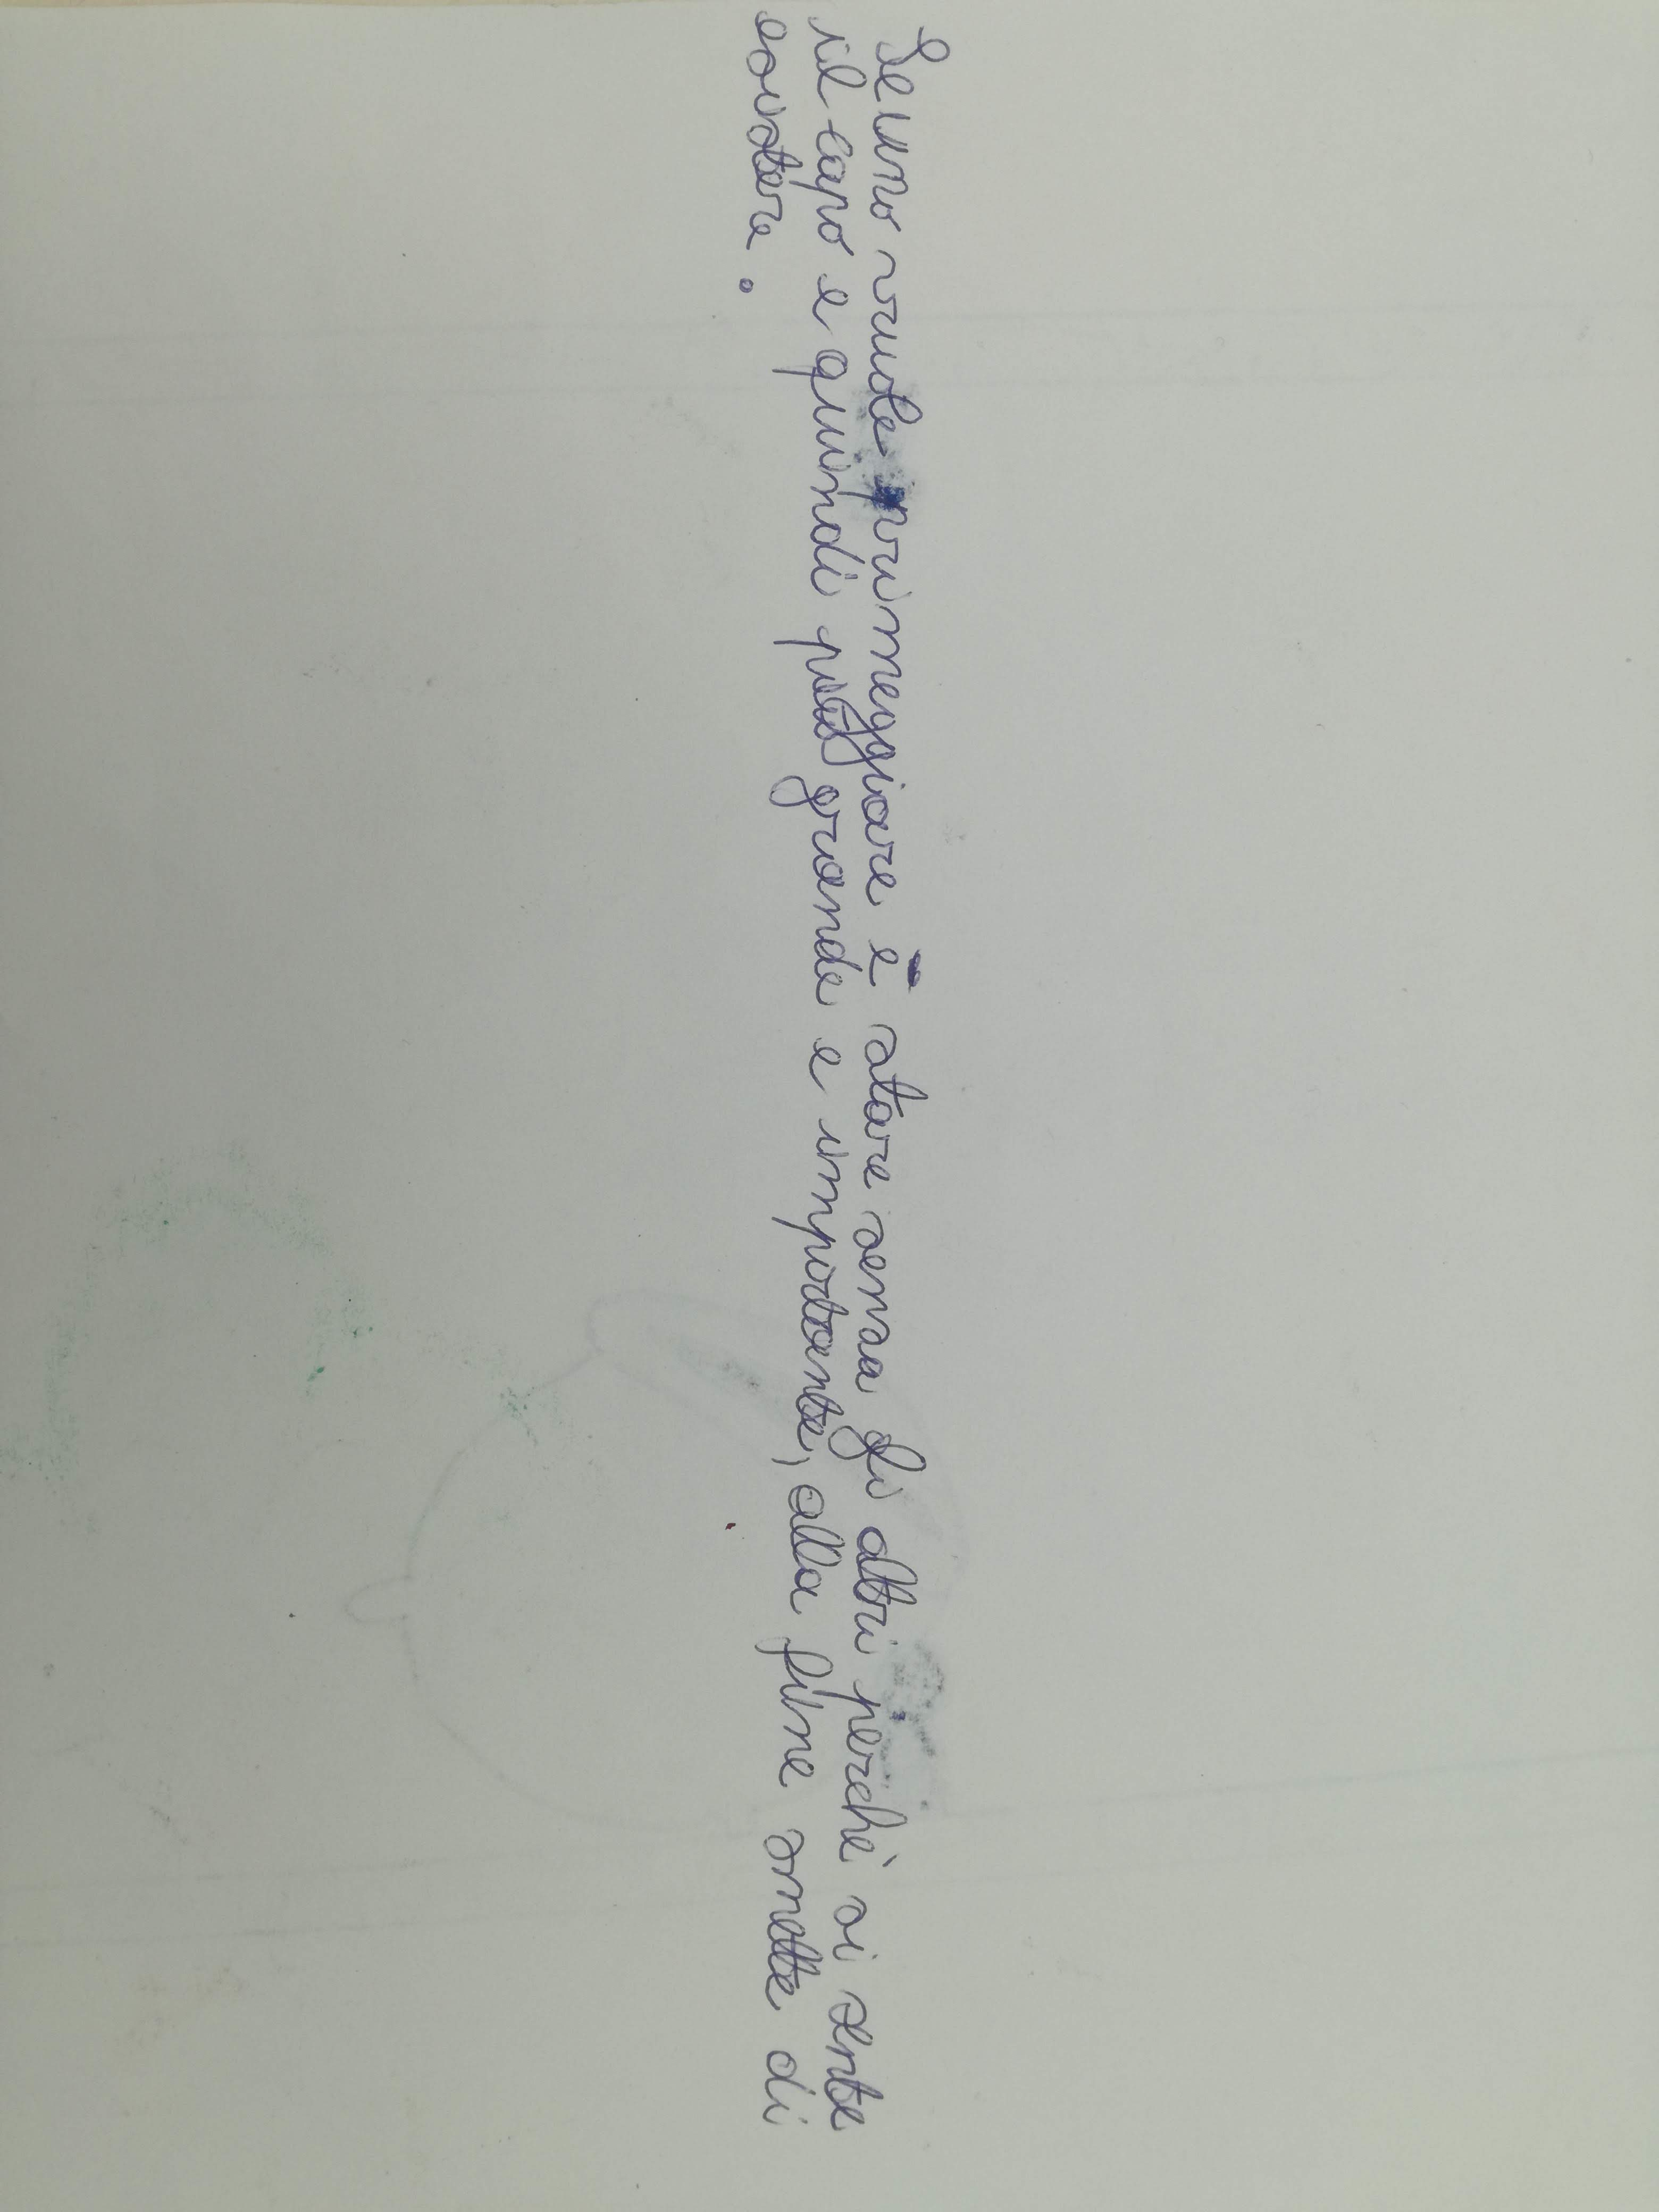 Se uno vuole primeggiare e stare senza gli altri perchè si sente
il capo e quindi più grande e importante, alla fine smette di
esistere.